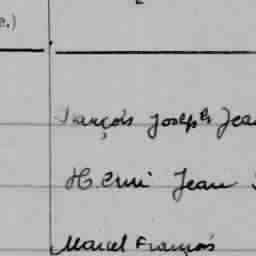 e.)
François Joseph Jean
Henri Jean
Marcel François